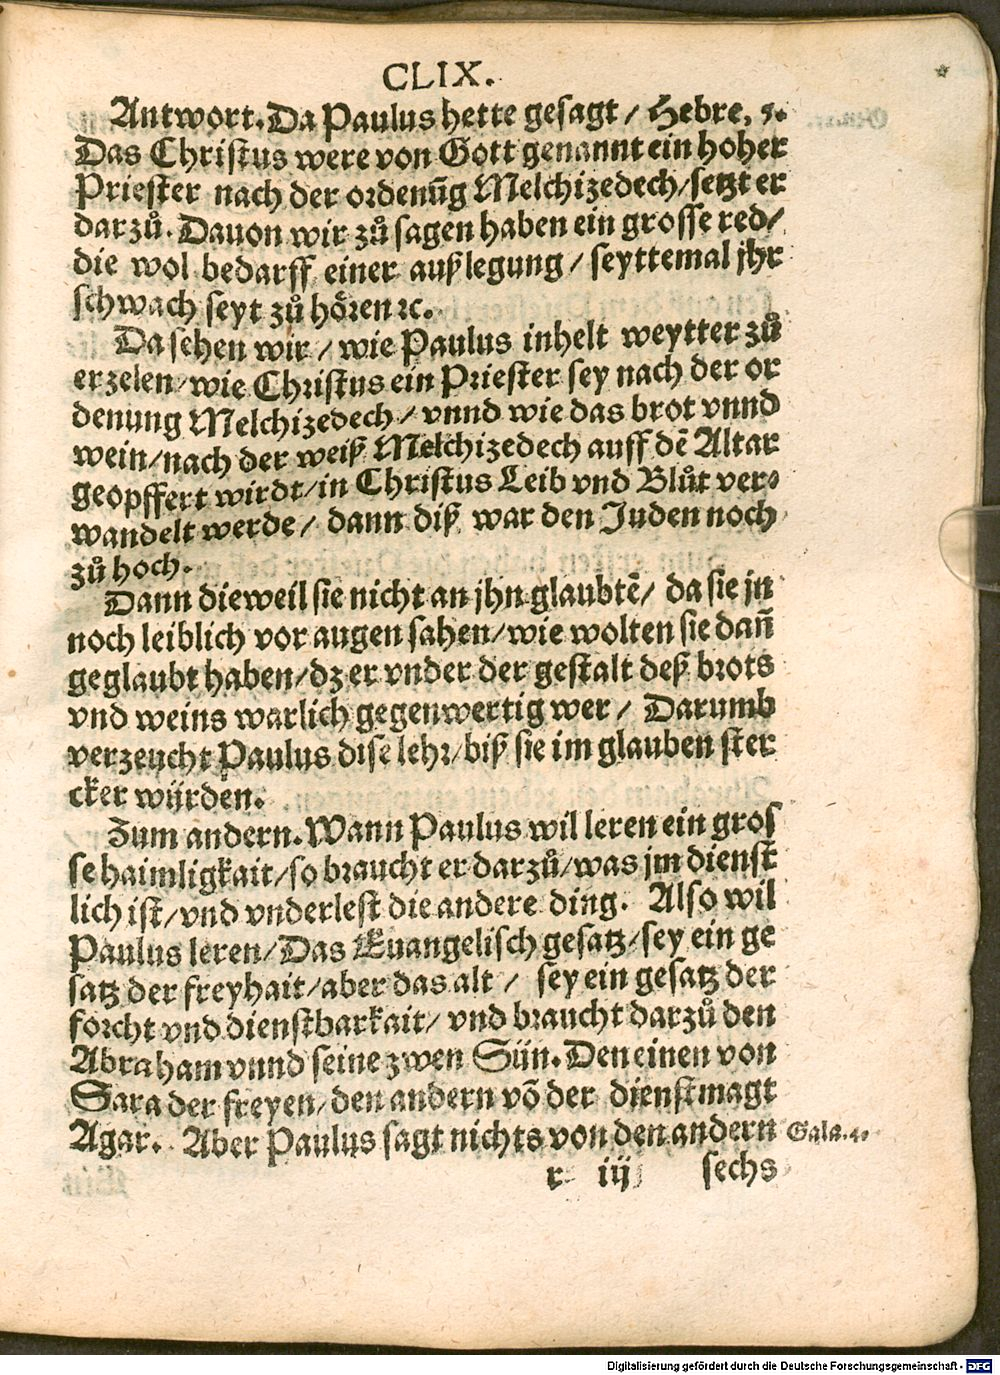 CLIX.
Antwort. Da Paulus hette gesagt / Hebre, 5.
Das Christus were von Gott genannt ein hoher
Priester nach der ordenūg Melchizedech / setzt er
darzů. Dauon wir zů sagen haben ein grosse red /
die wol bedarff einer außlegung / seyttemal jhr
schwach seyt zů hören ꝛc.
Da sehen wir / wie Paulus inhelt weytter zů
erzelen / wie Christus ein Priester sey nach der or
denung Melchizedech / vnnd wie das brot vnnd
wein / nach der weiß Melchizedech auff dē Altar
geopffert wirdt / in Christus Leib vnd Blůt ver⸗
wandelt werde / dann diß war den Juden noch
zů hoch.
Dann dieweil sie nicht an jhn glaubtē / da sie jn
noch leiblich vor augen sahen / wie wolten sie dañ
geglaubt haben / dz er vnder der gestalt deß brots
vnd weins warlich gegenwertig wer / Darumb
verzeucht Paulus dise lehr / biß sie im glauben ster
cker würden.
Zum andern. Wann Paulus wil leren ein gros
se haimligkait / so braucht er darzů / was jm dienst
lich ist / vnd vnderlest die andere ding. Also wil
Paulus leren / Das Euangelisch gesatz / sey ein ge
satz der freyhait / aber das alt / sey ein gesatz der
forcht vnd dienstbarkait / vnd braucht darzů den
Abraham vnnd seine zwen Sün. Den einen von
Sara der freyen / den andern võ der dienstmagt
Agar. Aber Paulus sagt nichts von den andern
Gala. 4.
r iij sechs
Digitalisierung gefördert durch die Deutsche Forschungsgemeinschaft - DFG